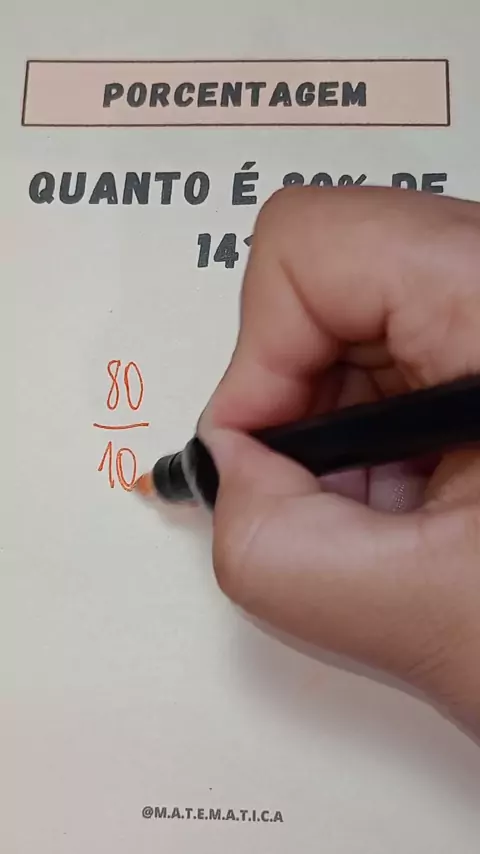 PORCENTAGEM
QUANTO É 80% DE
80
10
@M.A.T.E.M.A.T.I.C.A